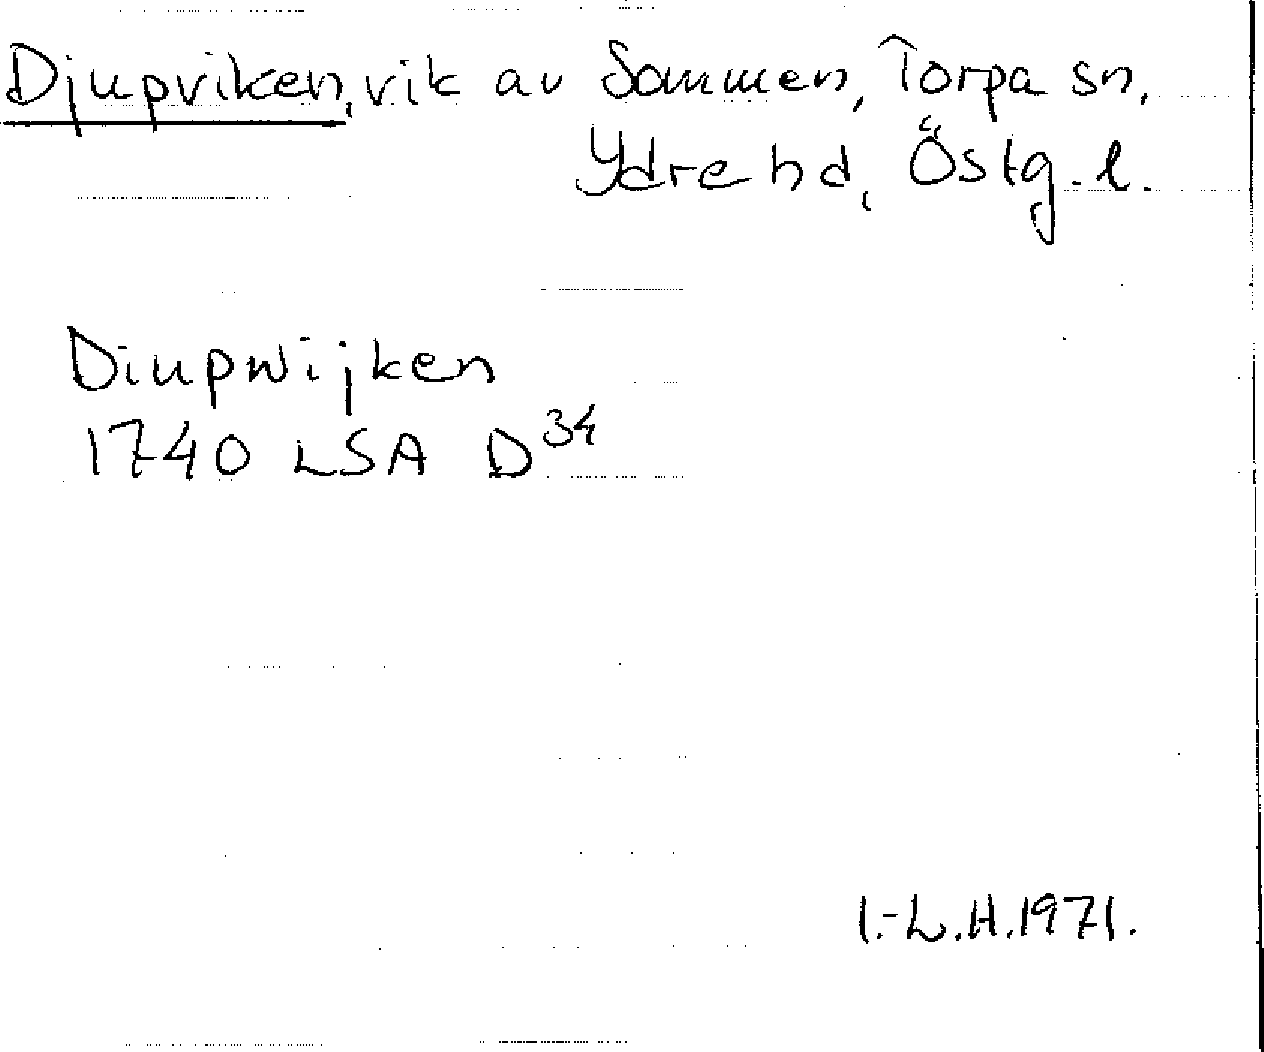 Djupviken, vik av Sommen, Torpa sn,
Ydre hd, Östg. l.
Diupwijken
1740 LSA D34
I.-L.H. 1971.